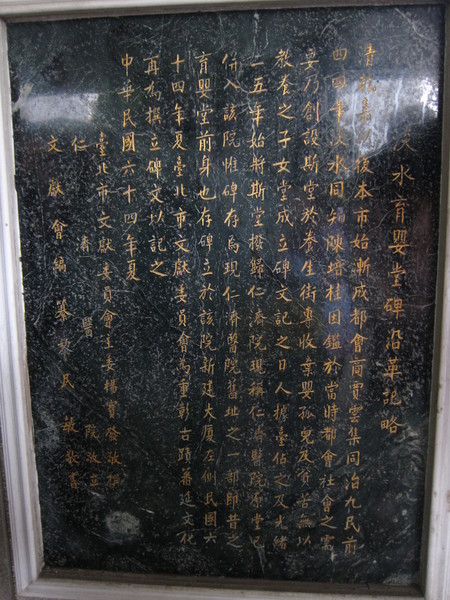 淡水育嬰堂碑沿革記略
清乾嘉以後本市始漸成都會商賈雲集同治九民前
四四年淡水同知陳培桂因鑑於當時都會社會之需
要乃創設斯堂於養生街專收棄嬰孤兒及貧苦無以
教養之子女堂成立碑文記之日人據臺佔之及光緒
一五年始將斯堂撥歸仁濟院現稱仁濟醫院原堂已
併入該院惟碑存為現仁濟醫院舊址之一部即昔之
育嬰堂前身也存碑立於該院新建大廈左側民國六
十四年夏臺北市文獻委員會為重彰古蹟蕃延文化
再為撰立碑文以記之
中華民國六十四年夏
臺北市文獻委員會主委楊寶發敬撰
仁濟醫院敬立
文獻會編纂黎民敏敬書